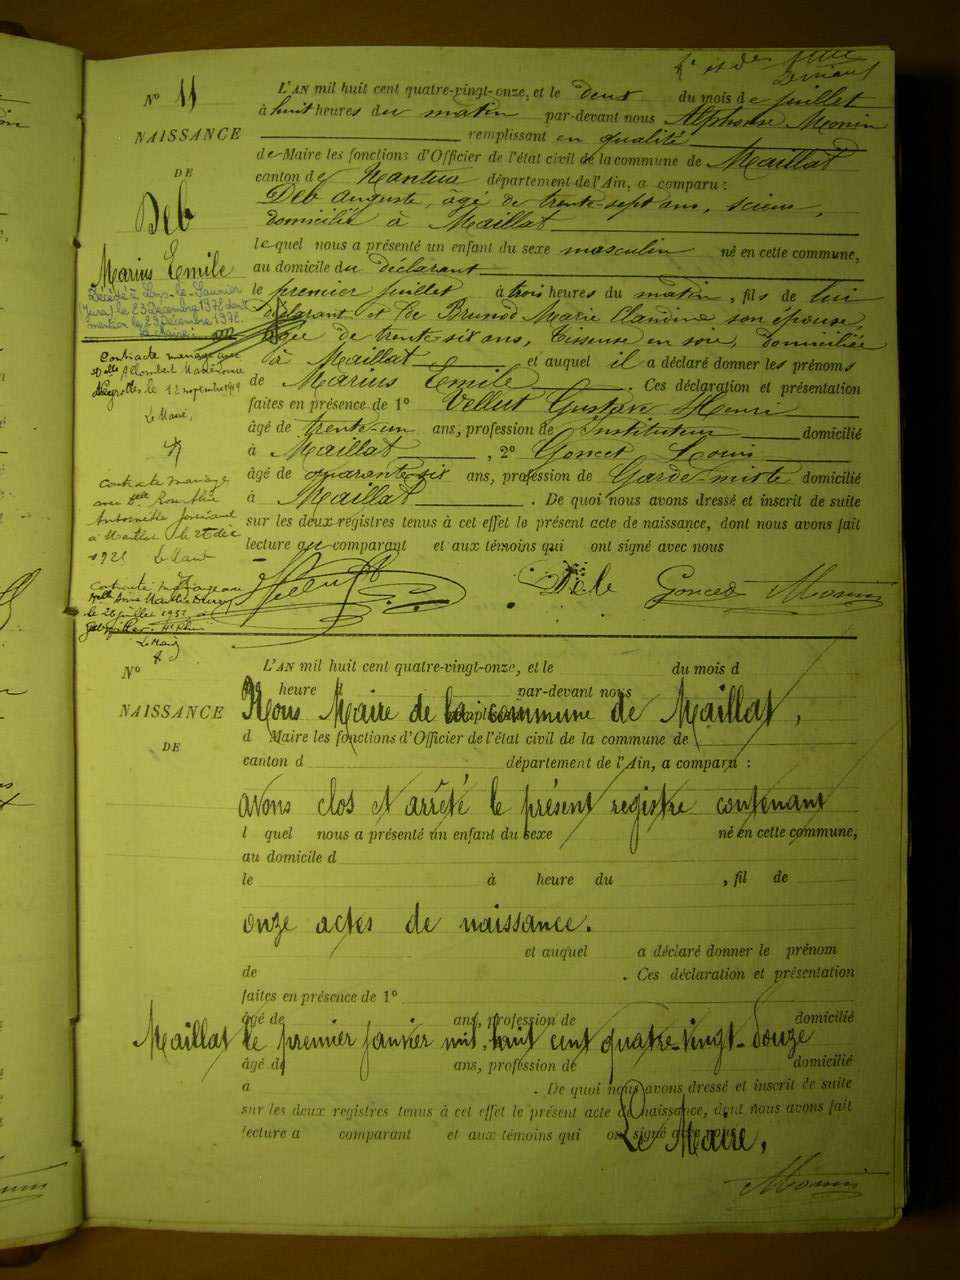 N° 11
NAISSANCE
DE
Deb
Marius Emile
Décédé à Lons-le-Saunier
(Jura) le 23 Décembre 1972 dont
mention le 29 Décembre 1972.
Contracte mariage avec
Delle Allombert
le 12 novembre 1919
Le Maire,
Contracte mariage
avec Delle
Antoinette
à Maillat le 26 déc
1921 Le Maire
Contracté mariage avec
Melle
le 26 juillet 1952 à
Le Maire
L'AN mil huit cent quatre-vingt-onze, et le deux du mois de juillet
à huit heures du matin par-devant nous Alphonse Monin
remplissant en qualité
de Maire les fonctions d'Officier de l'état civil de la commune de Maillat
canton de Nantua département de l'Ain, a comparu :
Deb Auguste, âgé de trente-sept ans, scieur,
domicilié à Maillat
lequel nous a présenté un enfant du sexe masculin né en cette commune,
au domicile du déclarant
le premier juillet à trois heures du matin, fils de lui
déclarant et de Brunod Marie Claudine son épouse,
âgée de trente-six ans, tisseuse en soie, domiciliée
à Maillat et auquel il a déclaré donner les prénoms
de Marius Emile. Ces déclaration et présentation
faites en présence de 1° Vellut Gustave Henri
âgé de trente-un ans, profession de Instituteur domicilié
à Maillat, 2° Goncet Louis
âgé de quarante-six ans, profession de Garde-mixte domicilié
à Maillat. De quoi nous avons dressé et inscrit de suite
sur les deux registres tenus à cet effet le présent acte de naissance, dont nous avons fait
lecture au comparant et aux témoins qui ont signé avec nous
Vellut Deb Goncet Monin
N°
NAISSANCE
DE
L'AN mil huit cent quatre-vingt-onze, et le du mois d
heure d par-devant nous
Nous Maire de la commune de Maillat,
d Maire les fonctions d'Officier de l'état civil de la commune de
canton d département de l'Ain, a comparu :
avons clos et arrêté le présent registre contenant
l quel nous a présenté un enfant du sexe né en cette commune,
au domicile d
le à heure du , fil de
onze actes de naissance.
et auquel a déclaré donner le prénom
de . Ces déclaration et présentation
faites en présence de 1°
âgé de ans, profession de domicilié
Maillat le premier janvier mil huit cent quatre-vingt-douze
âgé de ans, profession de domicilié
à . De quoi nous avons dressé et inscrit de suite
sur les deux registres tenus à cet effet le présent acte de naissance, dont nous avons fait
lecture a comparant et aux témoins qui ont signé avec nous
Le Maire,
Monin